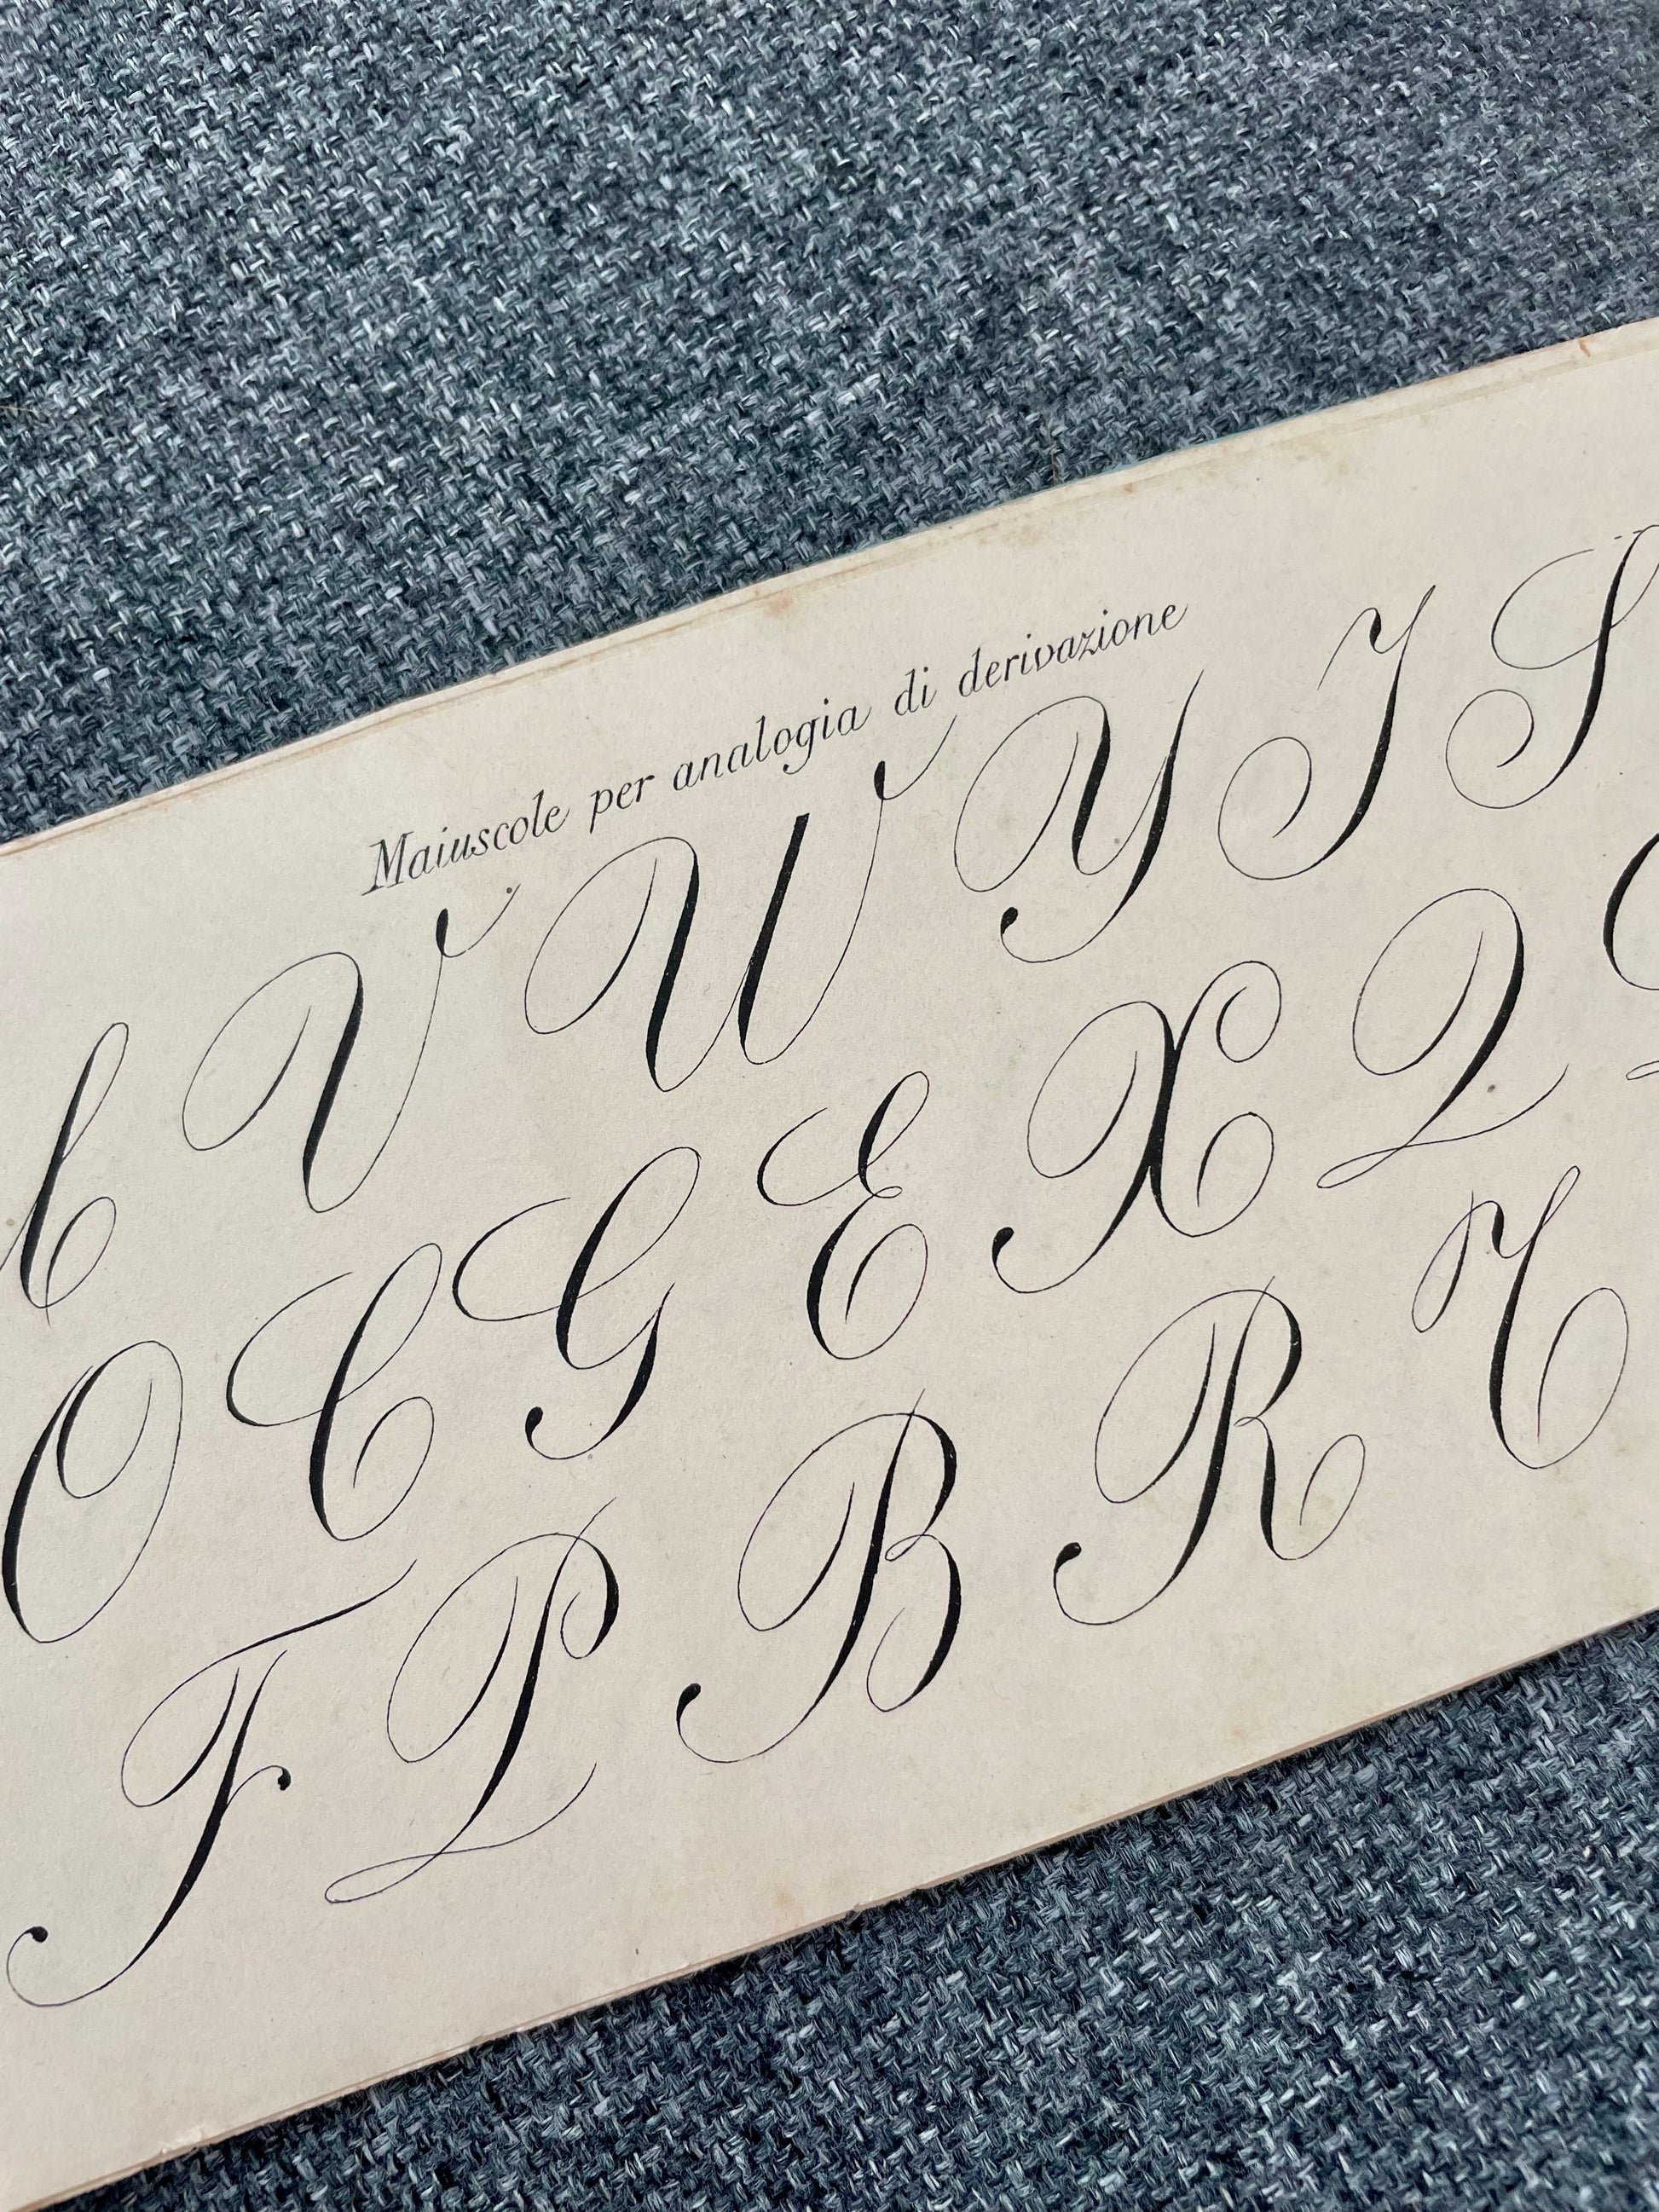 Maiuscole per analogia di derivazione
V W Y I S
O C G E X Q
F P B R Z